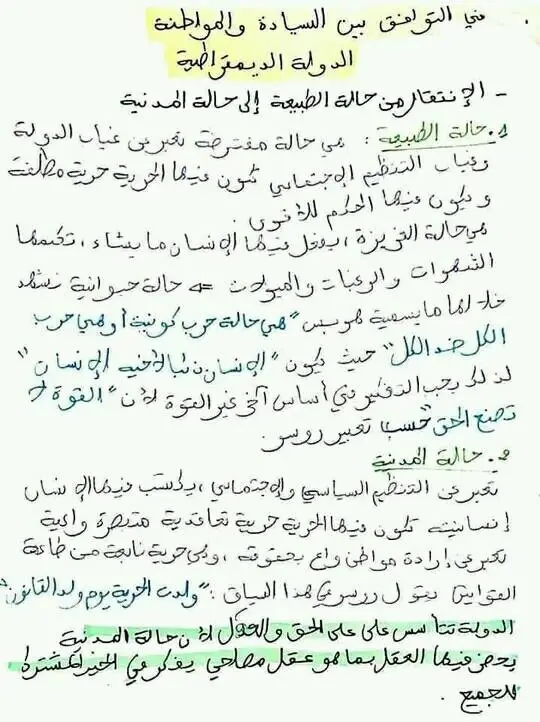 في التوافق بين السيادة والمواطنة
الدولة الديمقراطية
- الإنتقال من حالة الطبيعة إلى حالة المدنية
1. حالة الطبيعة : هي حالة مفترضة تعبر عن غياب الدولة
وغياب التنظيم الإجتماعي تكون فيها الحرية حرية مطلقة
ويكون فيها الحكم للأقوى.
هي حالة الغريزة ، يفعل فيها الإنسان ما يشاء ، تحكمها
الشهوات والرغبات والميولات => حالة حيوانية نشهد
خلالها ما يسميه هوبس "هي حالة حرب كونية أو هي حرب
الكل ضد الكل" حيث يكون "الإنسان ذئبا لأخيه الإنسان"
لذلك يجب التفكير في أساس آخر غير القوة لأن "القوة لا
تصنع الحق" حسب تعبير روسو.
2. حالة المدنية
تعبر عن التنظيم السياسي والإجتماعي ، يكتسب فيها الإنسان
إنسانيته تكون فيها الحرية حرية تعاقدية متبصرة واعية
تعبر عن إرادة مواطن واع بحقوقه ، وهي حرية نابعة من طاعة
القوانين يقول روسو في هذا السياق : "ولدت الحرية يوم ولد القانون"
الدولة تتأسس على على الحق والعدل لأن حالة المدنية
يحضر فيها العقل بما هو عقل مصالحي يفكر في الخير المشترك
للجميع .